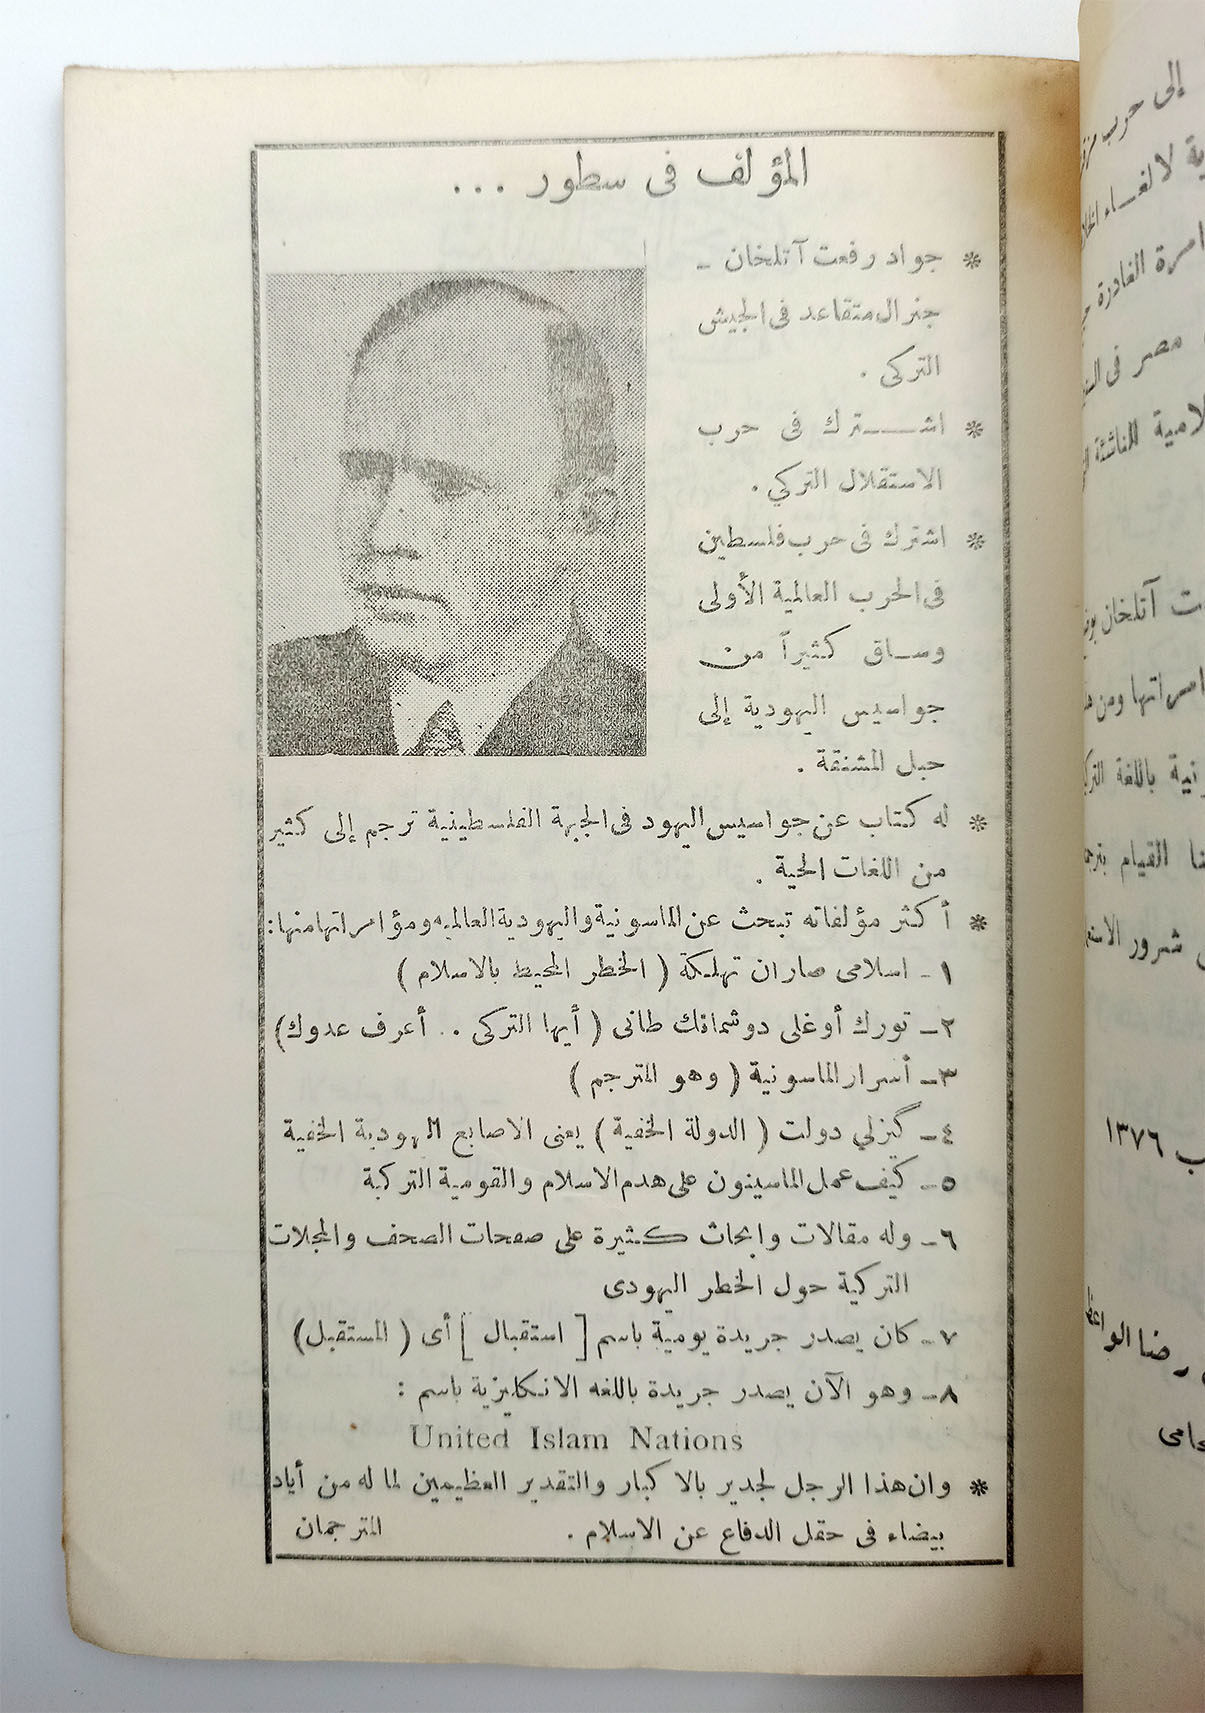 المؤلف فى سطور ...
* جواد رفعت آتلخان -
جنرال متقاعد فى الجيش
التركى .
* اشـــترك فى حرب
الاستقلال التركي .
* اشترك فى حرب فلسطين
فى الحرب العالمية الأولى
وساق كثيراً من
جواسيس اليهودية إلى
حبل المشنقة .
* له كتاب عن جواسيس اليهود فى الجبهة الفلسطينية ترجم إلى كثير
من اللغات الحية .
* أكثر مؤلفاته تبحث عن الماسونية واليهودية العالميه ومؤامراتها منها:
١- اسلامى صاران تهلكة ( الخطر المحيط بالاسلام )
٢- تورك أوغلى دوشمانك طانى ( أيها التركى .. أعرف عدوك)
٣- أسرار الماسونية ( وهو المترجم )
٤- گيزلي دولت ( الدولة الخفية ) يعنى الاصابع اليهودية الخفية
٥- كيف عمل الماسينون على هدم الاسلام والقومية التركية
٦- وله مقالات وابحاث كثيرة على صفحات الصحف والمجلات
التركية حول الخطر اليهودى
٧- كان يصدر جريدة يومية باسم [ استقبال ] أى ( المستقبل)
٨- وهو الآن يصدر جريدة باللغه الانكليزية باسم :
United Islam Nations
* وان هذا الرجل لجدير بالاكبار والتقدير العظيمين لما له من أياد
بيضاء فى حقل الدفاع عن الاسلام . المترجمان
إلى حرب
لالغاء
الغادرة
مصر فى
للناشئة
آتلخان
ومن
باللغة
القيام
شرور
١٣٧٦
رضا الواعظ